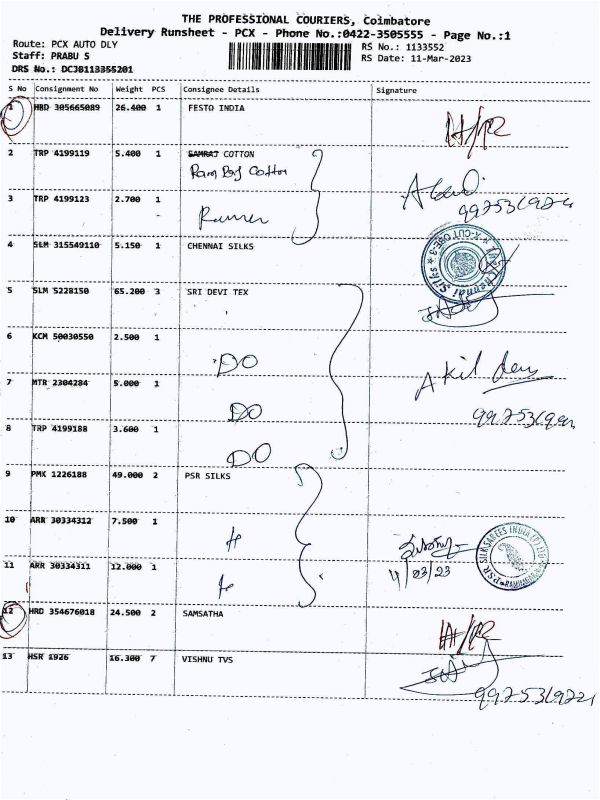 THE PROFESSIONAL COURIERS, Coimbatore
Delivery Runsheet - PCX - Phone No.:0422-3505555 - Page No.:1
Route: PCX AUTO DLY
RS No.: 1133552
Staff: PRABU S
RS Date: 11-Mar-2023
DRS No.: DCJB113355201
S No Consignment No Weight PCS Consignee Details Signature
1 HBD 305665089 26.400 1 FESTO INDIA
2 TRP 4199119 5.400 1 SAMRAJ COTTON
Ram Raj Cotton
3 TRP 4199123 2.700 1
4 SLM 315549110 5.150 1 CHENNAI SILKS
5 SLM 5228150 65.200 3 SRI DEVI TEX
6 KCM 50030550 2.500 1
DO
7 MTR 2304284 5.000 1
DO
8 TRP 4199188 3.600 1
DO
9 PMK 1226188 49.000 2 PSR SILKS
10 ARR 30334312 7.500 1
11 ARR 30334311 12.000 1
PSR SILK SAREES INDIA (P) LTD
12 HRD 354676018 24.500 2 SAMSATHA
13 HSR 1926 16.300 7 VISHNU TVS